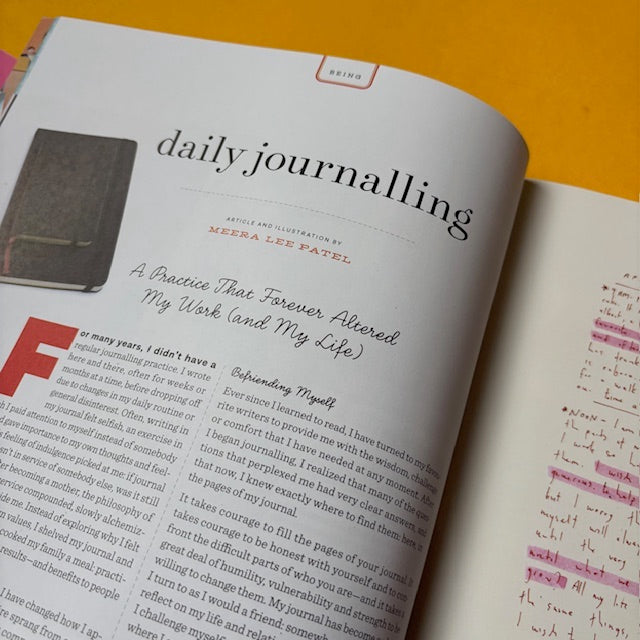 BEING
daily journalling
ARTICLE AND ILLUSTRATION BY
MEERA LEE PATEL
A Practice That Forever Altered
My Work (and My Life)
For many years, I didn't have a
regular journalling practice. I wrote
here and there, often for weeks or
months at a time, before dropping off
due to changes in my daily routine or
general disinterest. Often, writing in
my journal felt selfish, an exercise in
I paid attention to myself instead of somebody
gave importance to my own thoughts and feel-
feeling of indulgence picked at me: if journal
in service of somebody else, was it still
becoming a mother, the philosophy of
service compound, slowly alchemiz-
me. Instead of exploring why I felt
values, I shelved my journal and
cooked my family a meal: practi-
results—and benefits to people
I have changed how I ap-
sprang from
Befriending Myself
Ever since I learned to read, I have turned to my
writers to provide me with the wisdom,
or comfort that I have needed at any moment. After
I began journalling, I realized that many of the
tions that perplexed me had very clear answers, and
that now, I knew exactly where to find them: here, in
the pages of my journal.
It takes courage to fill the pages of your journal. It
takes courage to be honest with yourself and to
front the difficult parts of who you are—and it takes a
great deal of humility, vulnerability and strength to be
willing to change them. My journal has become
I turn to as I would a friend:
reflect on my life and
I challenge myself
where I
NOON:
the parts of
I work so
them. I wish
generous to help
but I worry
myself will
until the very
until what we
grow? All my life
the same things
I wish